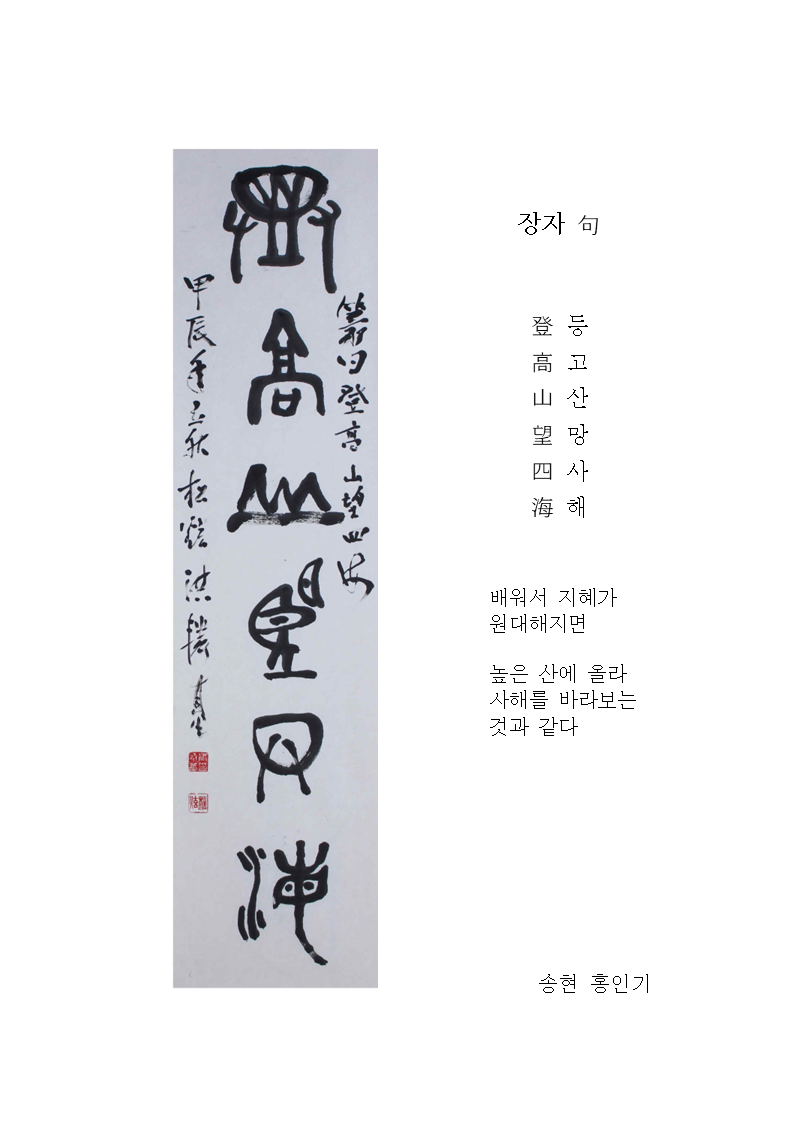 登高山望四海
登高山望四海
甲辰年
장자 句
登 등
高 고
山 산
望 망
四 사
海 해
배워서 지혜가
원대해지면
높은 산에 올라
사해를 바라보는
것과 같다
송현 홍인기